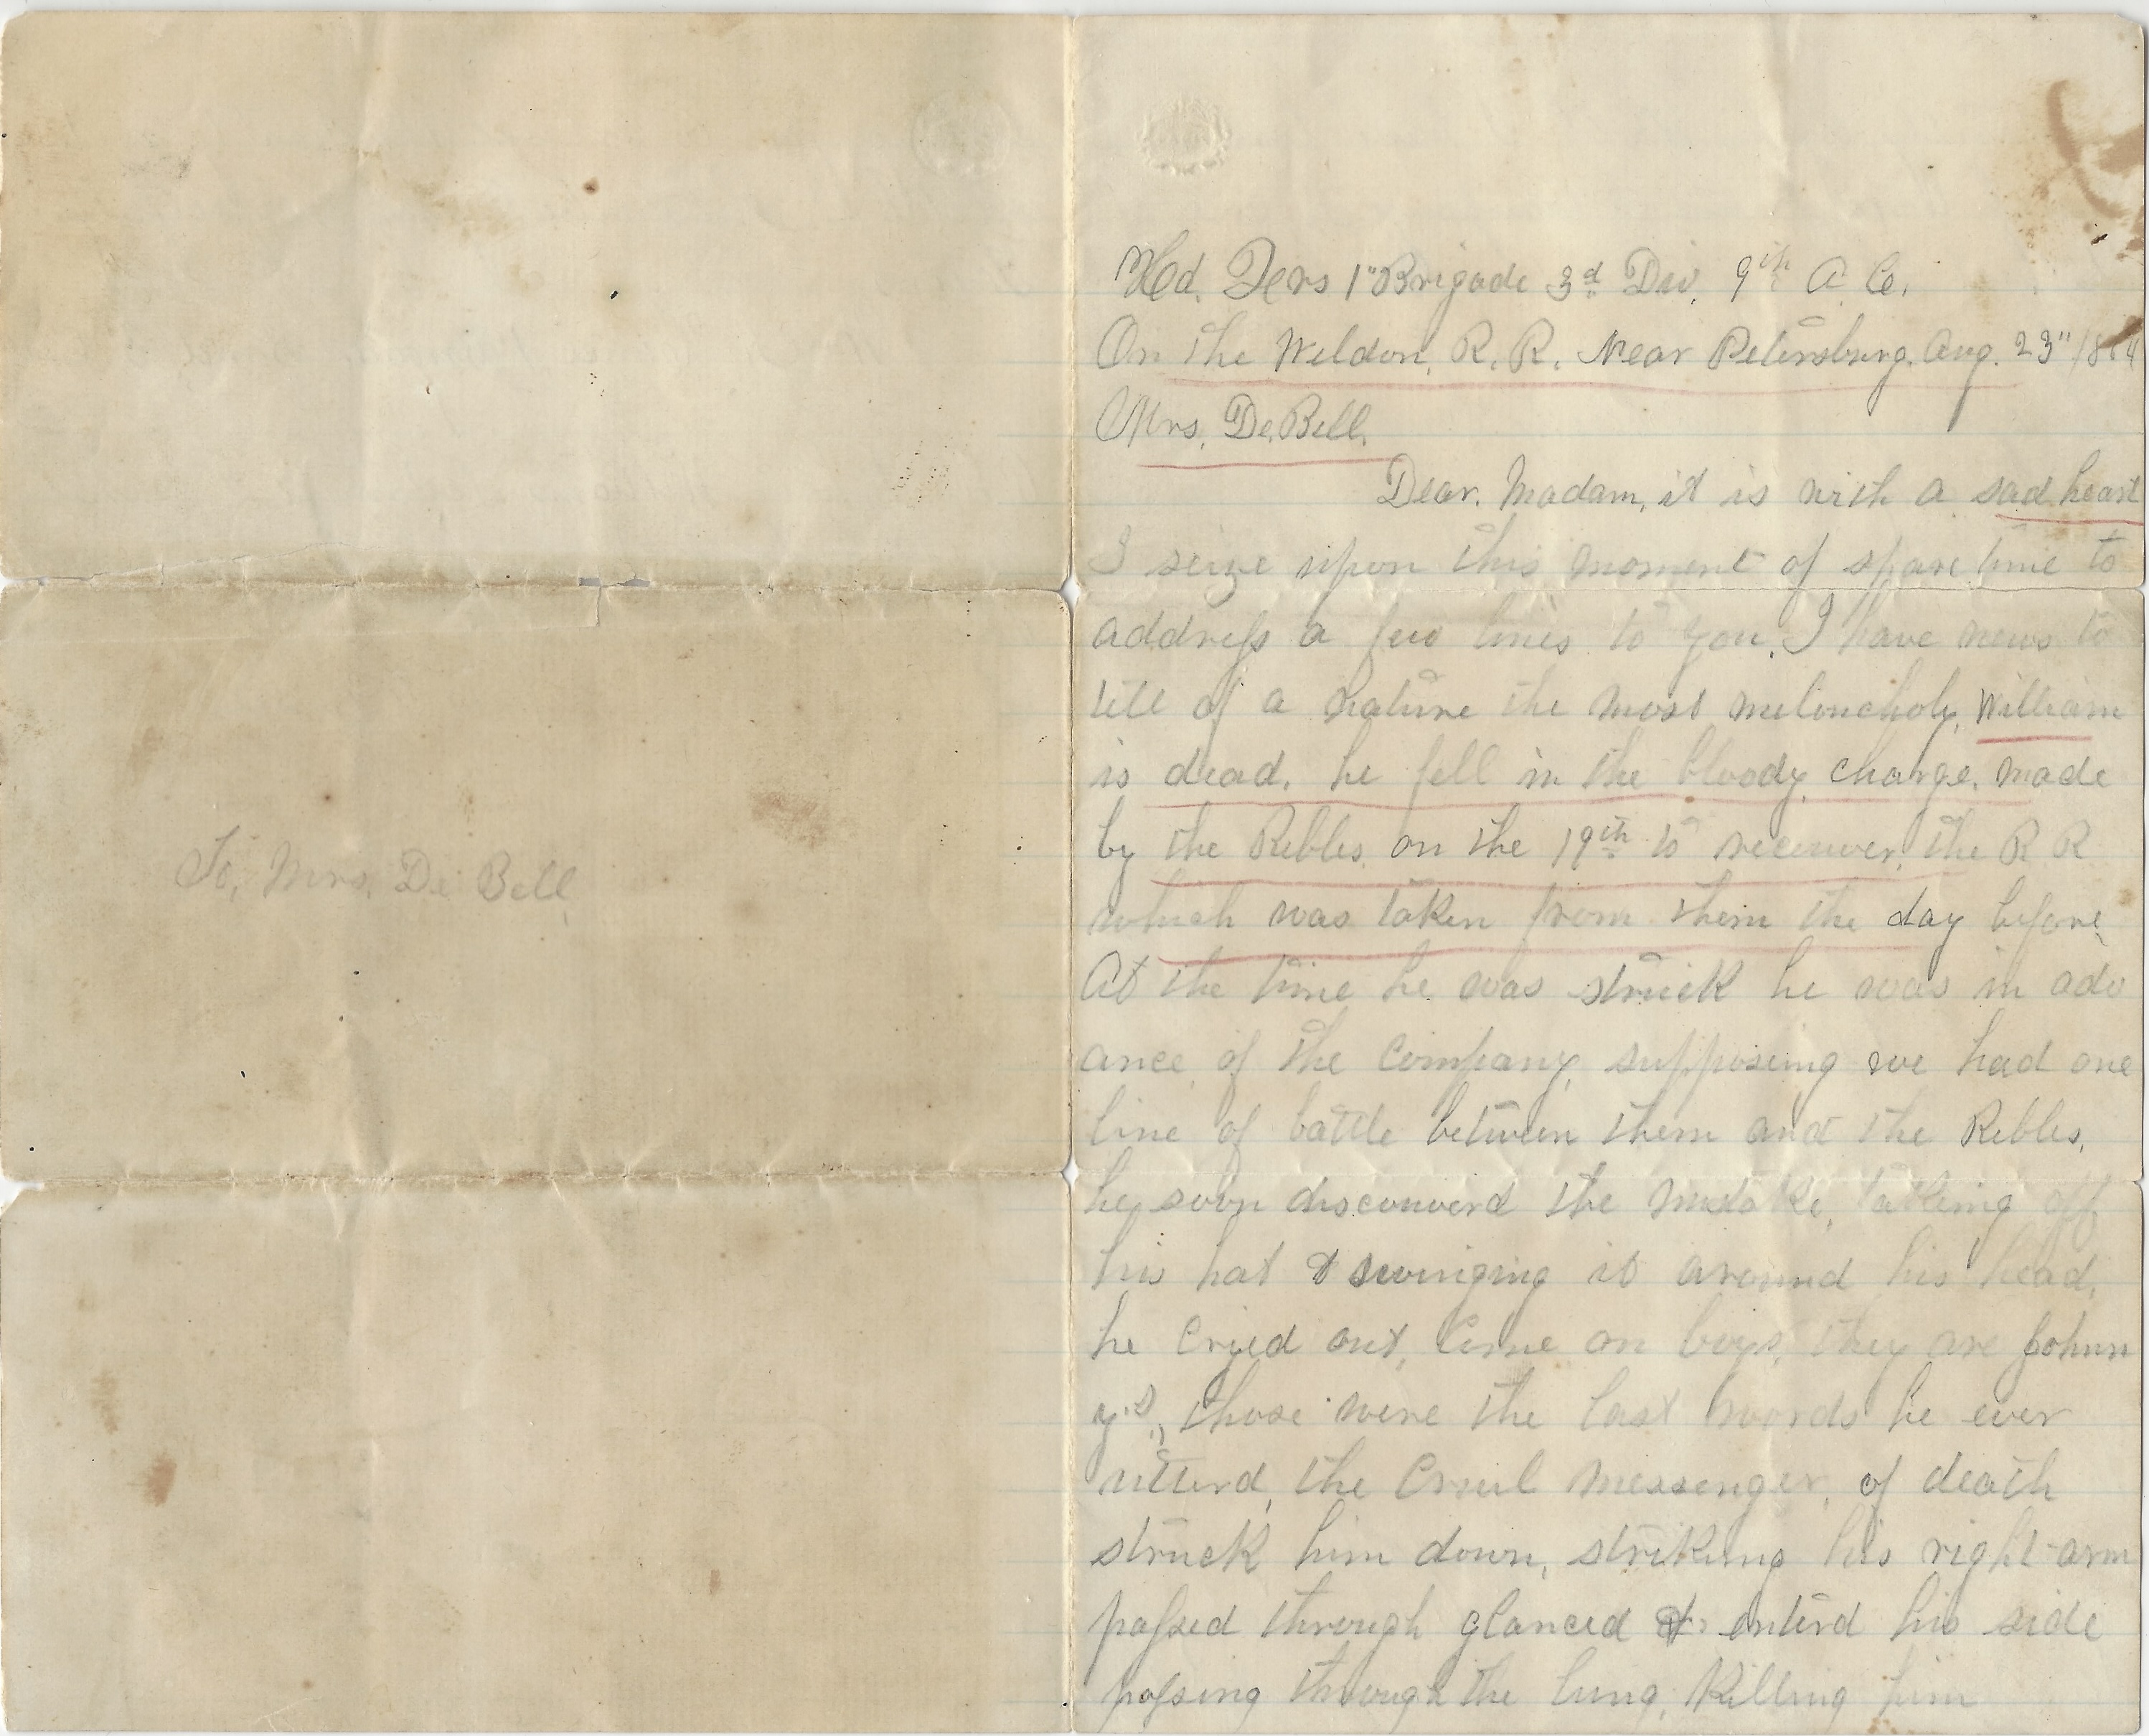 To, Mrs. De Bell,
Hed. Qers 1" Brigade 3d Div. 9th A. Co.
On the Weldon, R. R. Near Petersburg. Aug. 23"/864
Mrs. De. Bell.
Dear. Madam, it is with a sad heart
I seize upon this moment of spare time to
address a few lines to you. I have news to
tell of a nature the most meloncholy. William
is dead. he fell in the bloody charge. made
by the Rebles on the 19th to recouver the R R
which was taken from them the day before.
At the time he was struck he was in adv
ance of the Company, supposing we had one
line of battle between them and the Rebles.
he soon discouverd the mistake, takeing off
his hat & swinging it around his head,
he Cryed out, Come on boys, they are Johnn
y's," those were the last words he ever
utterd, the Cruel messenger, of death
struck him down, striking his right arm
passed through glanced & enterd his side
passing through the lung, Killing him